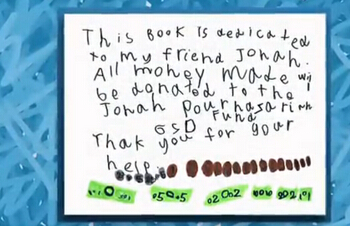 This Book Is dedicated
to my friend Jonah.
All money made wil
be donated to the
Jonah Pournasarian
GSD Fund
Thak you for your
help.